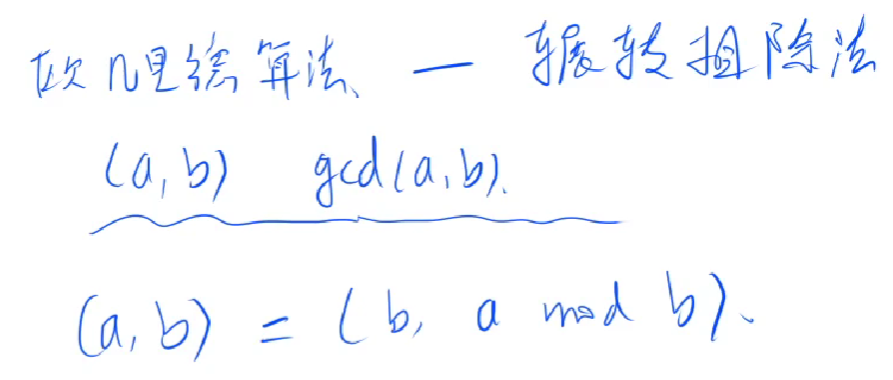 欧几里德算法 — 辗转相除法
(a,b) gcd(a,b).
(a,b) = (b, a mod b).